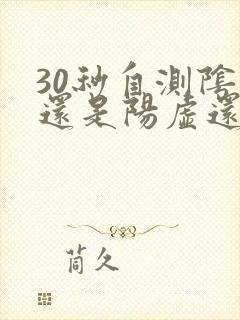 30秒自測陰
還是陽虛還
茼久